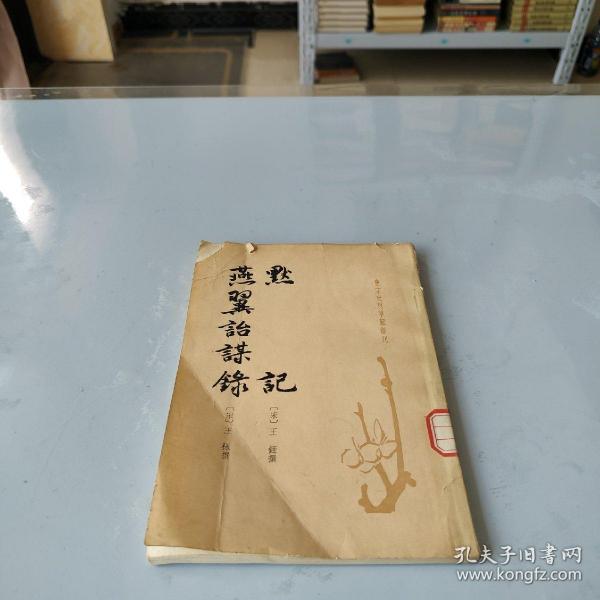 唐宋史料筆記叢刊
默記
〔宋〕王銍撰
燕翼詒謀錄
〔宋〕王栐撰
孔夫子旧书网
www.kongfz.com